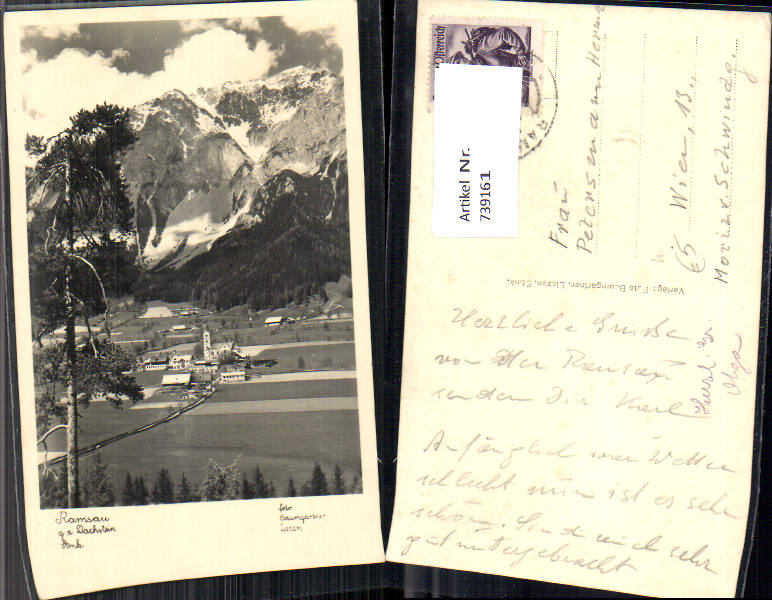 Ramsau
g d Dachstein
Stmk
foto
Baumgartner
Liezen
Österreich
Artikel Nr.
739161
Frau
Petersmann Hermi
Wien, 13.,
Moritz v. Schwindg.
Verlag: Foto Baumgartner, Liezen, Stmk.
Herzliche Grüße
von der Ramsau
senden Dir Karl
Olga
Anfänglich war Wetter
schlecht nun ist es sehr
schön. Sind auch sehr
gut untergebracht